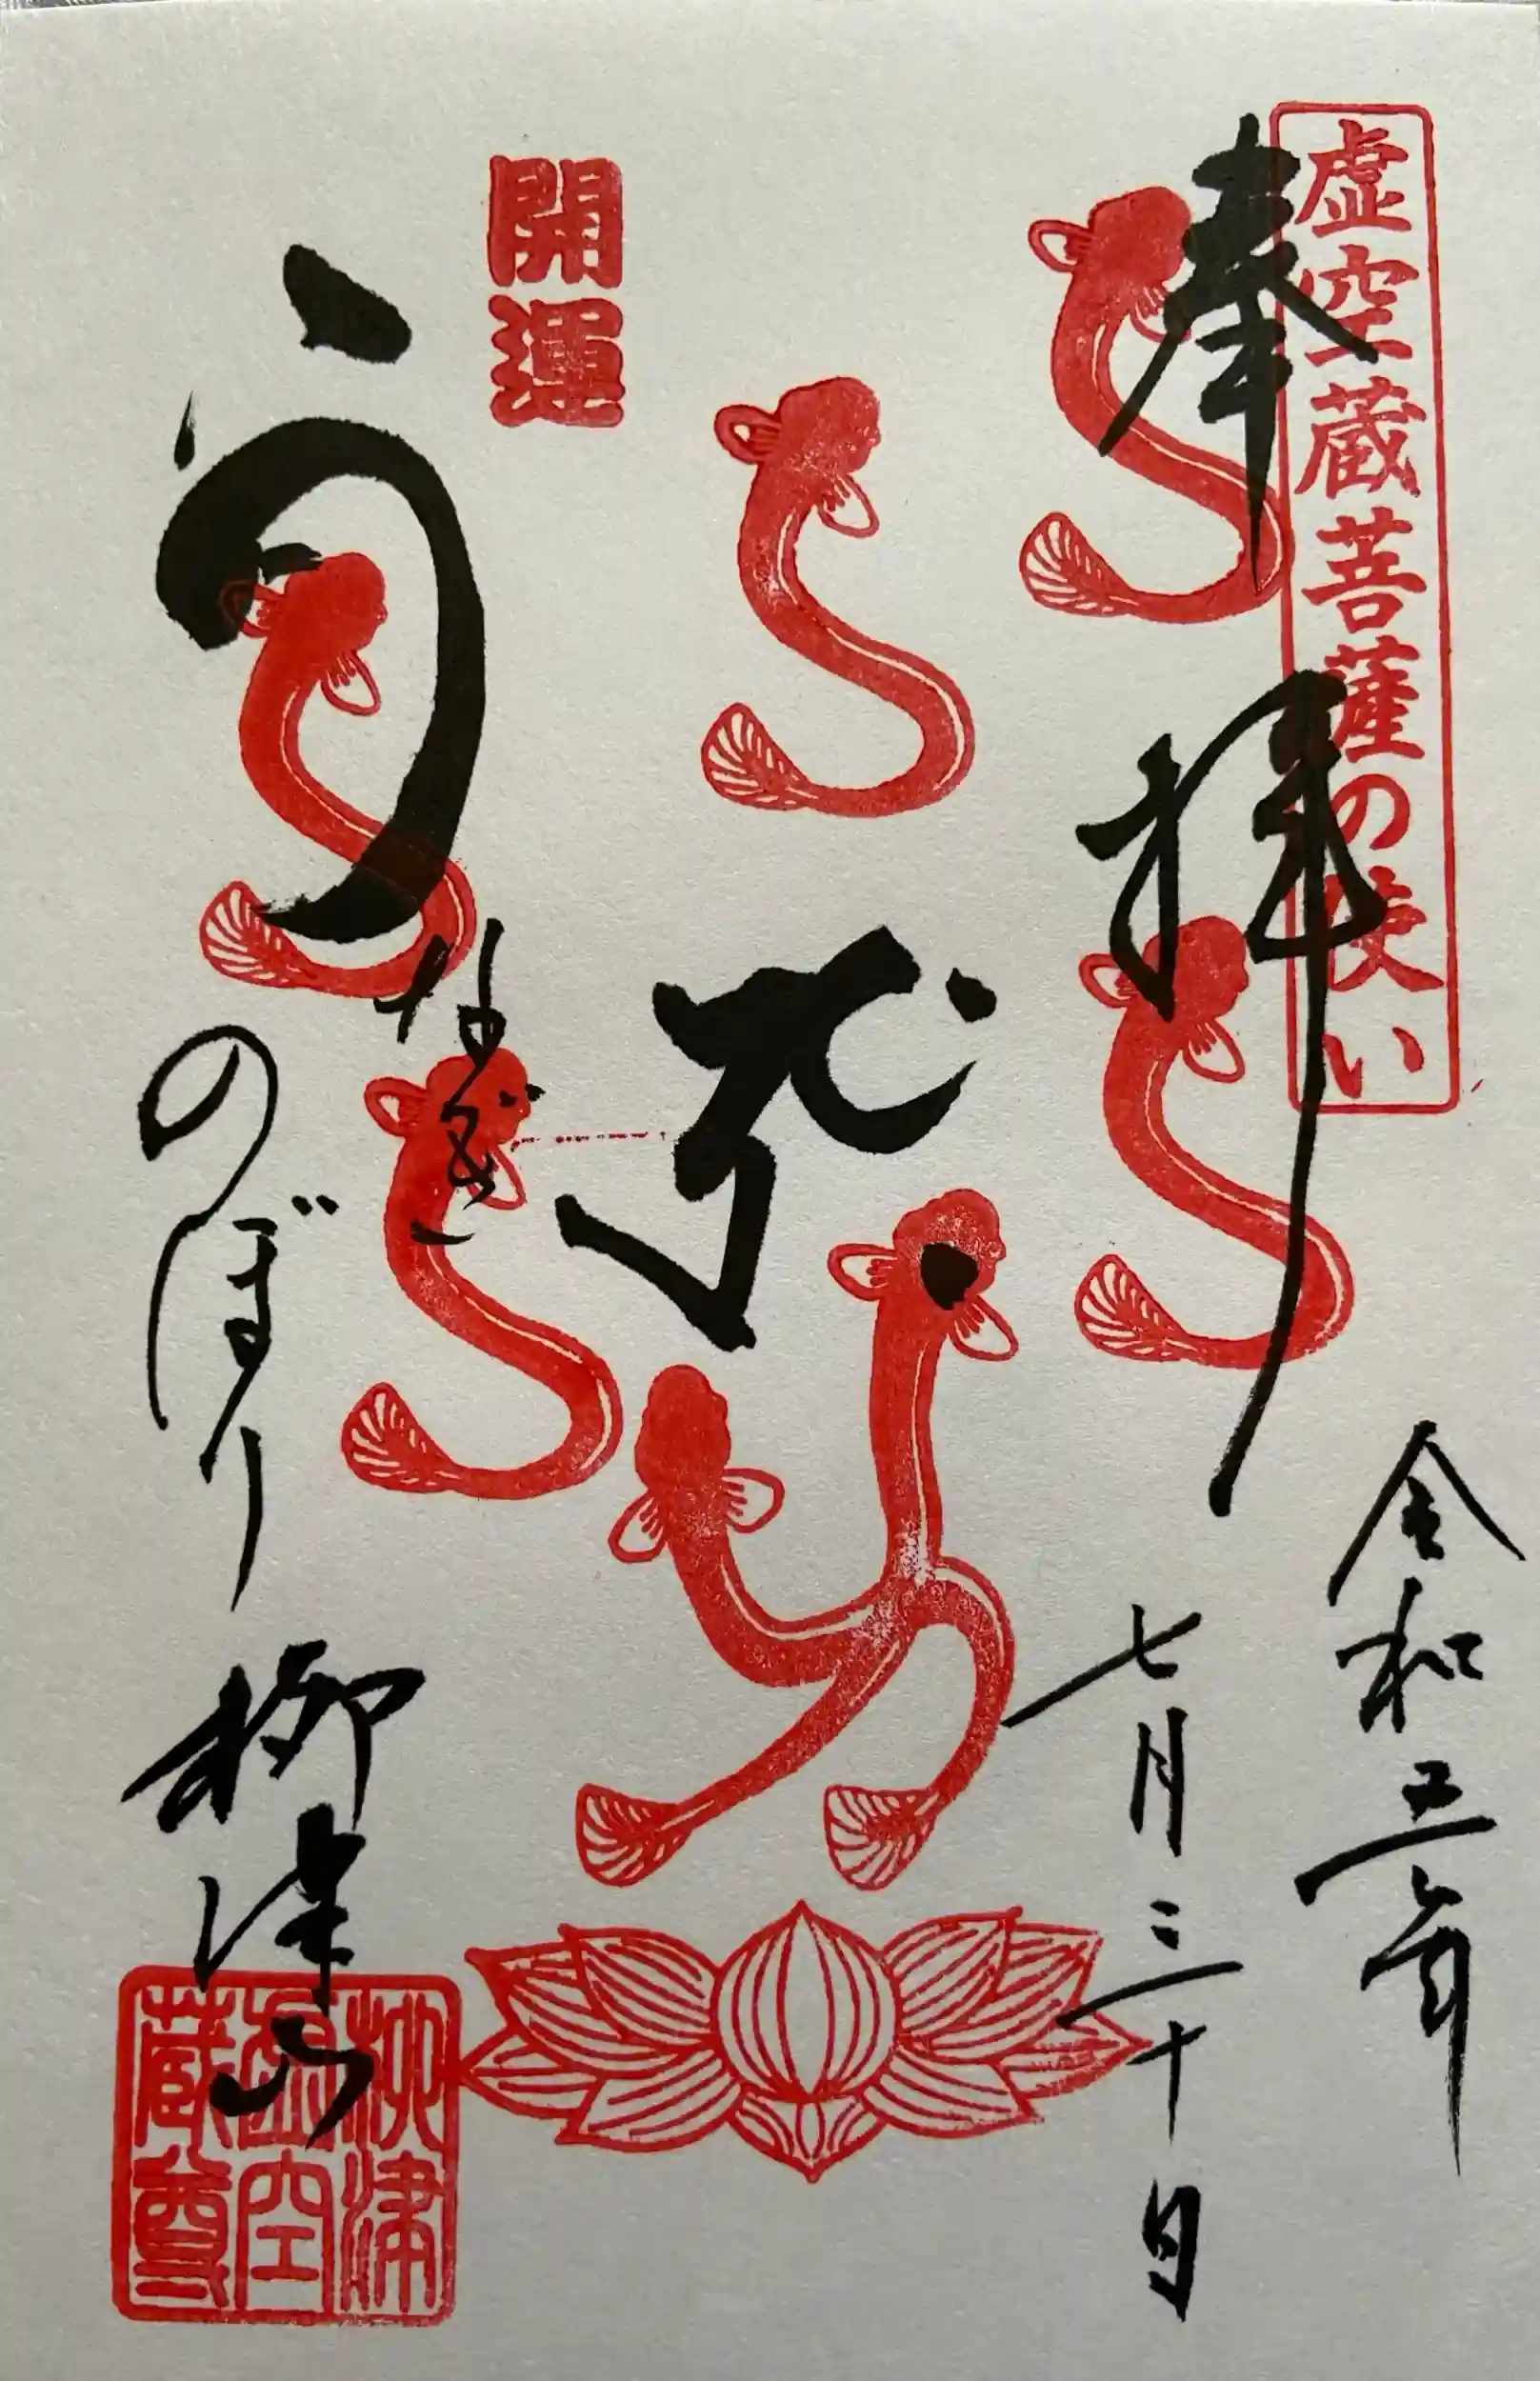 虚空蔵菩薩の使い
奉拝
令和五年
七月三十日
開運
うなぎ
のぼり
柳津山
柳津
虚空
蔵尊